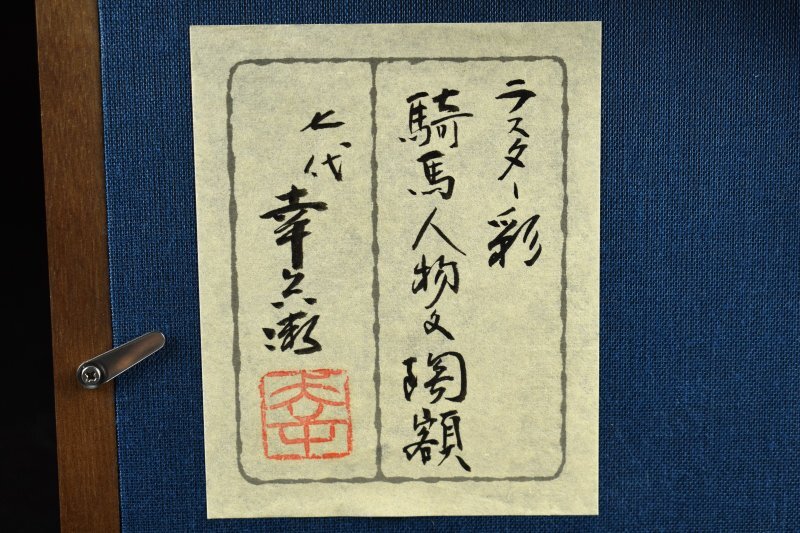 ラスター彩
騎馬人物文陶額
七代
幸兵衛
幸